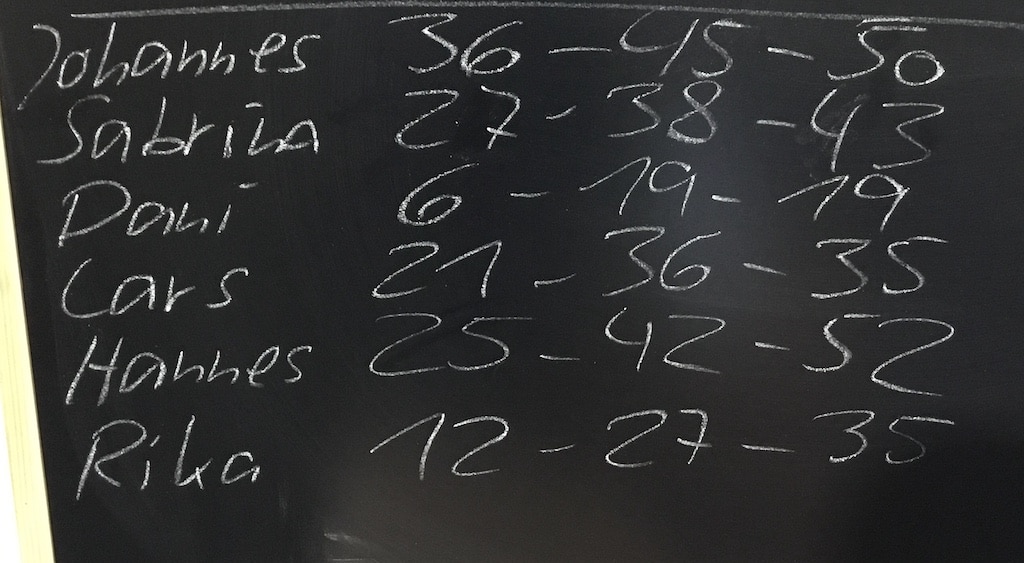 Johannes 36 - 45 - 50
Sabrina 27 - 38 - 43
Dani 6 - 19 - 19
Lars 21 - 36 - 35
Hannes 25 - 42 - 52
Rika 12 - 27 - 35